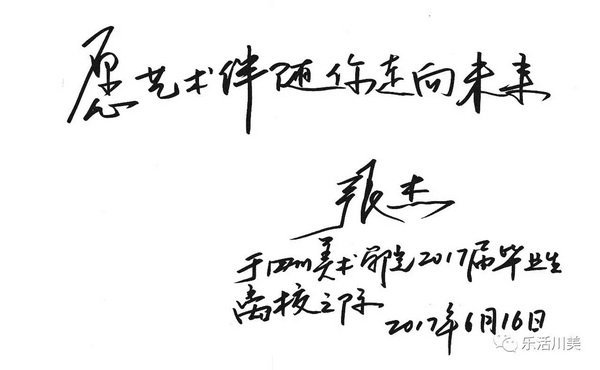 愿艺术伴随你走向未来
张杰
于四川美术学院2017届毕业生
离校之际
2017年6月16日
乐活川美